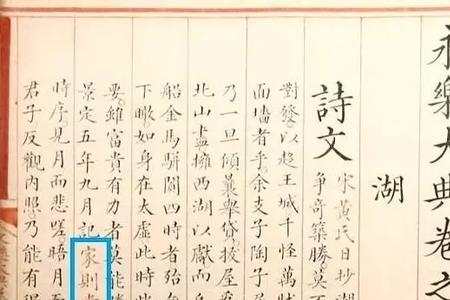 永樂大典卷之
湖
詩文
宋黃氏日抄湖
爭奇築勝莫
對發以趍王城千怪萬狀
面墻者乎余支子陶子
乃一旦傾囊舉貸拔屋
北山盡擁西湖以獻而
船金馬駢闐四時者殆
下瞰如身在太虛此時此
要雖富貴有力者莫能
景定五年九月記家則
時序見月而悲嗟晤月
君子反觀內照乃能有